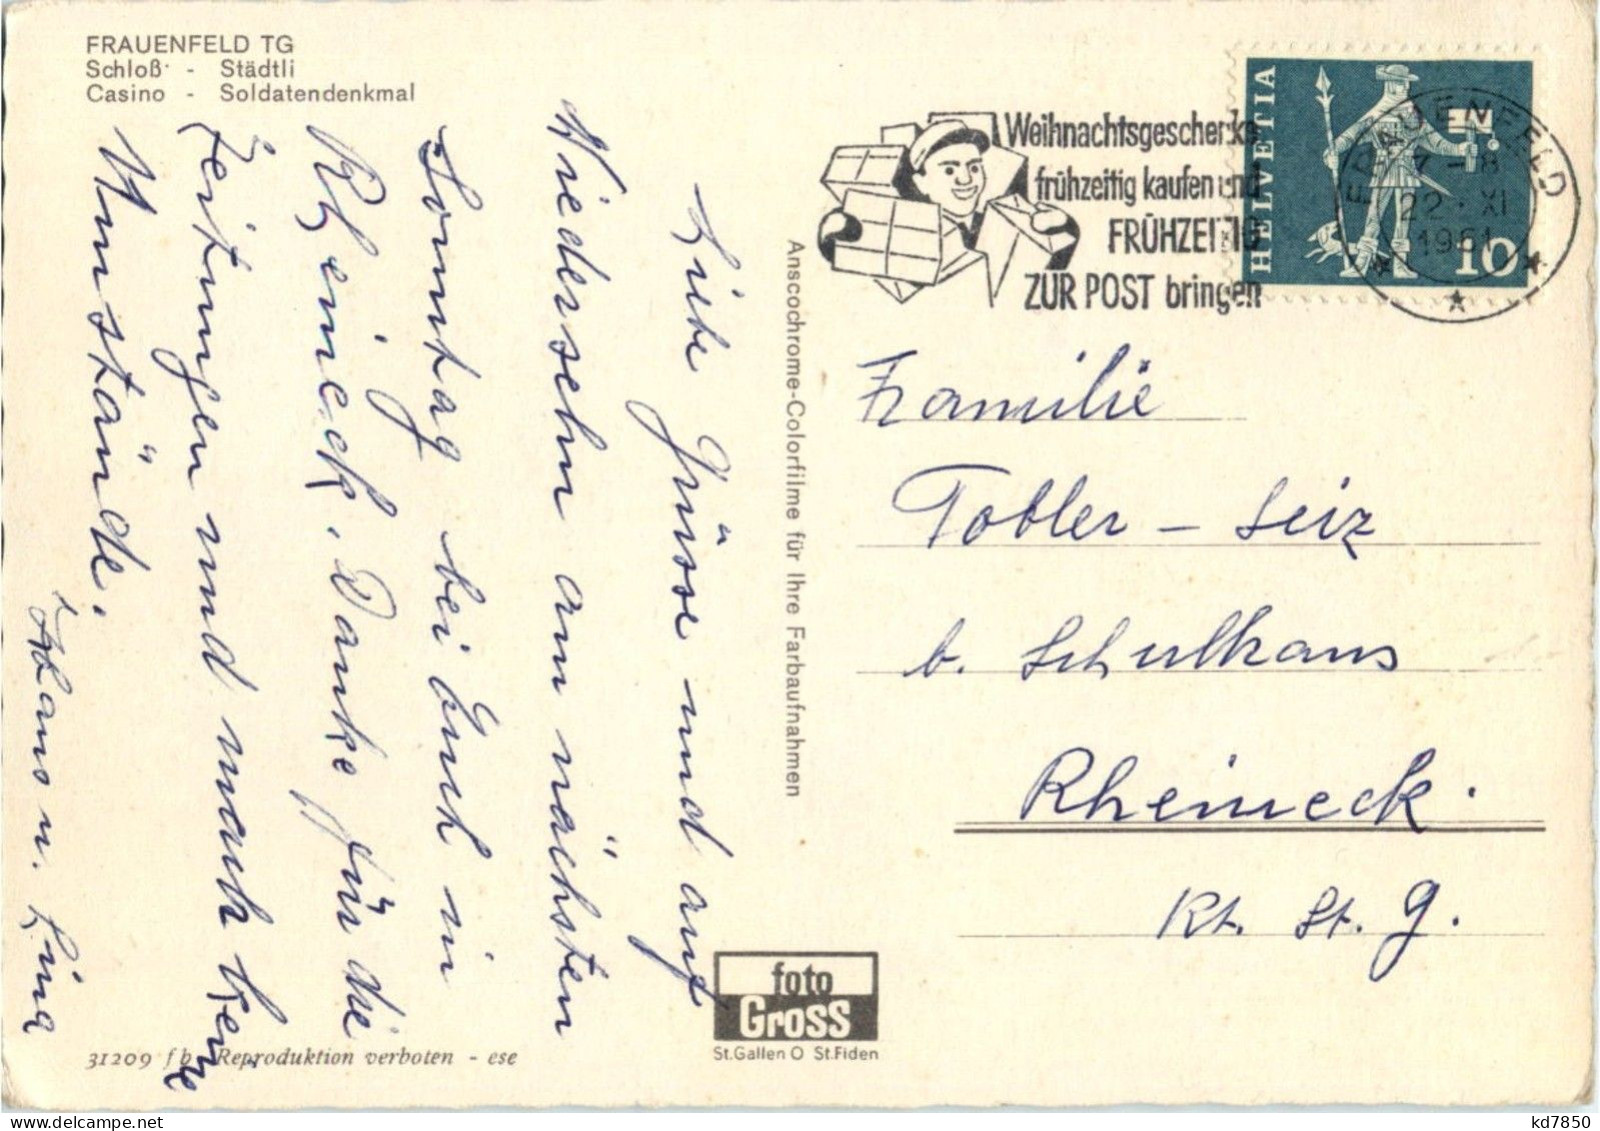 FRAUENFELD TG
Schloß - Städtli
Casino - Soldatendenkmal
Weihnachtsgeschenke
frühzeitig kaufen und
FRÜHZEITIG
ZUR POST bringen
HELVETIA
10
FRAUENFELD
7-8
22·XI
1961
Liebe Grüsse und auf
Wiedersehn am nächsten
Sonntag bei Euch in
Rheineck. Danke für die
Zeitungen und mach keine
Umstände.
Hans u. Lina
Anscochrome-Colorfilme für Ihre Farbaufnahmen
Familie
Tobler - Seiz
b. Schulhaus
Rheineck.
Kt. St. G.
foto
Gross
St.Gallen O St.Fiden
31209 fb Reproduktion verboten - ese
kd7850